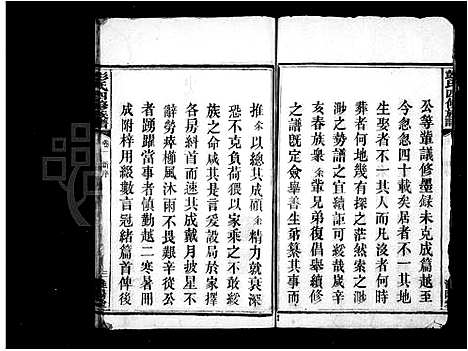 公等輩議修墨録未克成篇越至
今忽忽四十載矣居者不一其地
生娶者不一其人而凡沒者何時
葬者何地設有探討之茫然索之渺
渺之勢譜之宜續詎可緩哉歲辛
亥春族衆余輩兄弟復倡舉續修
之譜既定僉舉善生弟纂其事而
推余以總其成顧余精力就衰深
恐不克負荷猥以家乘之不敢綏
族之命咸其是言爰設局於家擇
辭勞瘁櫛風沐雨不畏艱辛從公
者踴躍當事者慎勤越二寒暑而
成附梓用綴數言冠緒篇首俾後
彭氏四修族譜
卷一
新序